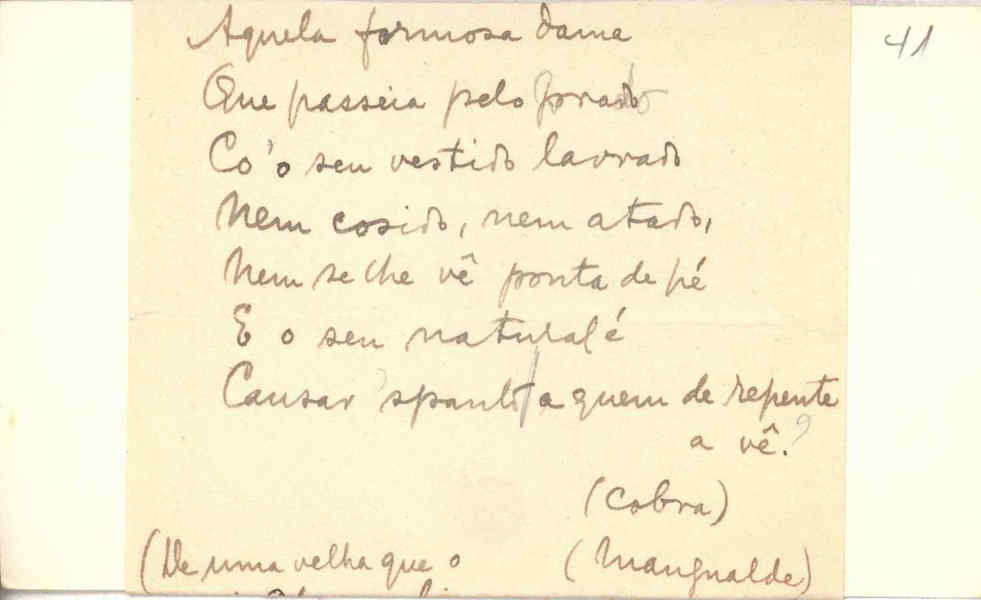 41
Aquela formosa dama
Que passeia pelo prado
Co'o seu vestido lavrado
Nem cosido, nem atado,
Nem se lhe vê ponta de pé
E o seu natural é
Causar 'spanto a quem de repente
a vê?
(Cobra)
(De uma velha que o
(Mangualde)